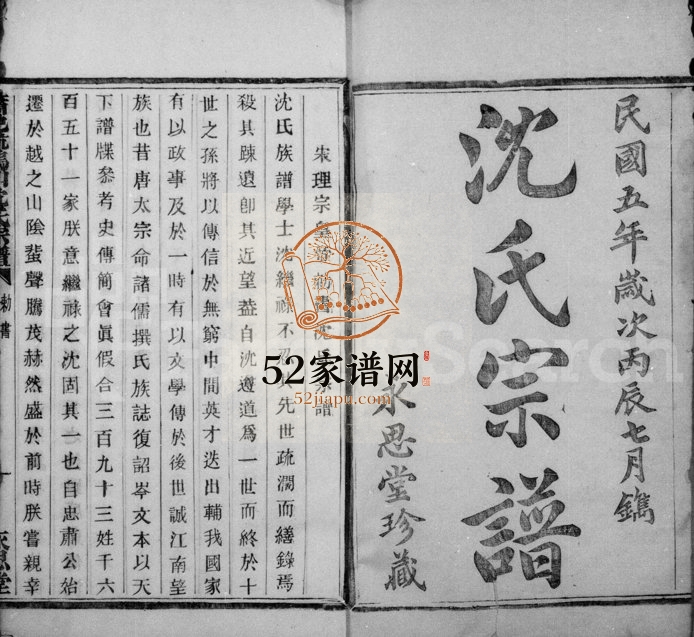 民國五年歲次丙辰七月鐫
沈氏宗譜
永思堂珍藏
宋理宗皇帝勅書沈氏宗譜
沈氏族譜學士沈繼祿不忍先世疏濶而繕錄焉
殺其踈遺卽其近望葢自沈遵道爲一世而終於十
世之孫將以傳信於無窮中間英才迭出輔我國家
有以政事及於一時有以文學傳於後世誠江南望
族也昔唐太宗命諸儒撰氏族誌復詔岑文本以天
下譜牒叅考史傳簡會眞假合三百九十三姓千六
百五十一家朕意繼祿之沈固其一也自忠肅公始
遷於越之山陰蜚聲騰茂赫然盛於前時朕嘗親幸
沈氏宗譜
勅書
一
永思堂
52家谱网
52jiapu.com